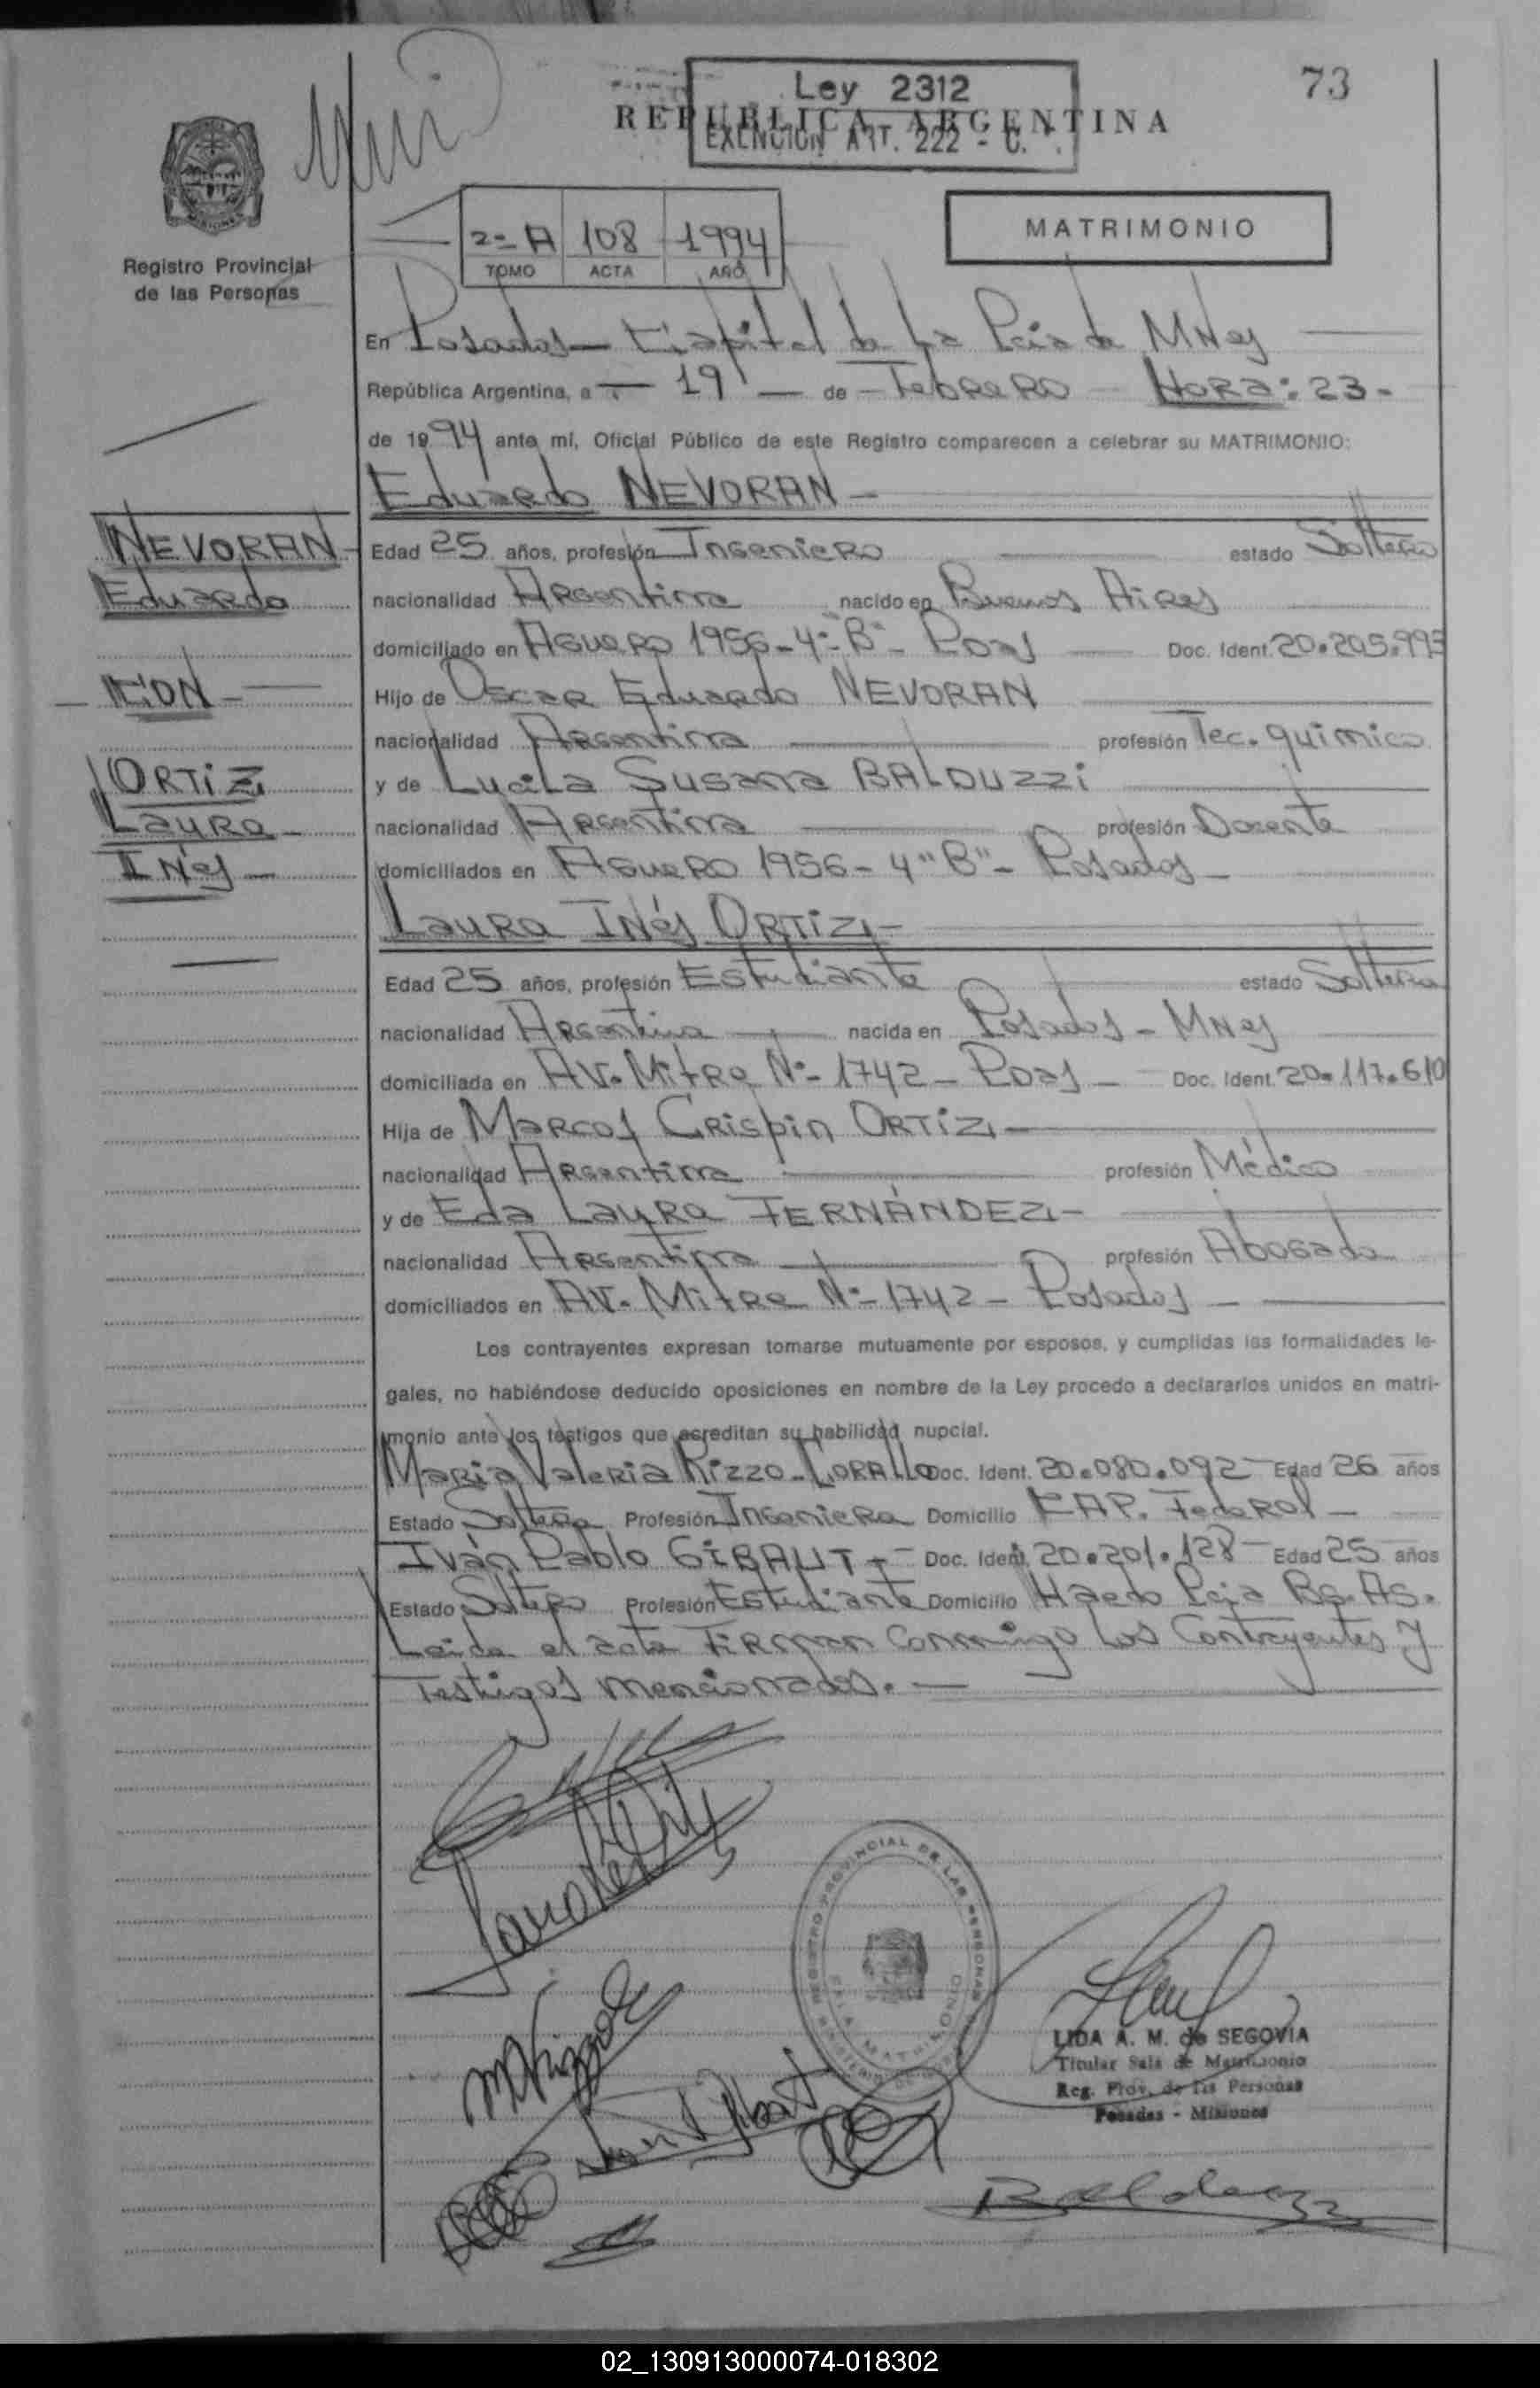 73
Ley 2312
REPUBLICA ARGENTINA
EXENCION ART. 222 - C.
MATRIMONIO
2º A 108 1994
TOMO ACTA AÑO
Registro Provincial
de las Personas
En Posadas - Capital de La Pcia de Mnes
República Argentina, a 19 de Febrero HORA: 23-
de 1994 ante mí, Oficial Público de este Registro comparecen a celebrar su MATRIMONIO:
Eduardo NEVORAN -
NEVORAN -
Eduardo
CON -
ORTIZ
Laura -
INés -
Edad 25 años, profesión Ingeniero estado Soltero
nacionalidad Argentina nacido en Buenos Aires
domiciliado en Aguero 1956 - 4º "B" - Pdas Doc. Ident. 20.205.993
Hijo de Oscar Eduardo NEVORAN
nacionalidad Argentina profesión Tec. químico
y de Lucila Susana BALDUZZI
nacionalidad Argentina profesión Docente
domiciliados en Aguero 1956 - 4 "B" - Posadas -
Laura INés ORTIZ -
Edad 25 años, profesión Estudiante estado Soltera
nacionalidad Argentina nacida en Posados - Mnes
domiciliada en AV. Mitre Nº 1742 - Pdas - Doc. Ident. 20.117.610
Hija de Marcos Crispin ORTIZ -
nacionalidad Argentina profesión Médico
y de Eda Laura FERNÁNDEZ -
nacionalidad Argentina profesión Abogada
domiciliados en AV. Mitre Nº 1742 - Posadas -
Los contrayentes expresan tomarse mutuamente por esposos, y cumplidas las formalidades le-
gales, no habiéndose deducido oposiciones en nombre de la Ley procedo a declararlos unidos en matri-
monio ante los testigos que acreditan su habilidad nupcial.
Maria Valeria Rizzo - CORALLO Doc. Ident. 20.080.092 Edad 26 años
Estado Soltera Profesión Ingeniera Domicilio CAP. Federal -
Iván Pablo GIBAUT - Doc. Ident. 20.201.128 Edad 25 años
Estado Soltero Profesión Estudiante Domicilio Haedo Pcia Bs. As.
Leída el acta Firman Conmigo Los Contrayentes y
Testigos mencionados. -
REGISTRO PROVINCIAL DE LAS PERSONAS
SALA MATRIMONIO
LIDA A. M. de SEGOVIA
Titular Sala de Matrimonio
Reg. Prov. de las Personas
Posadas - Misiones
02_130913000074-018302